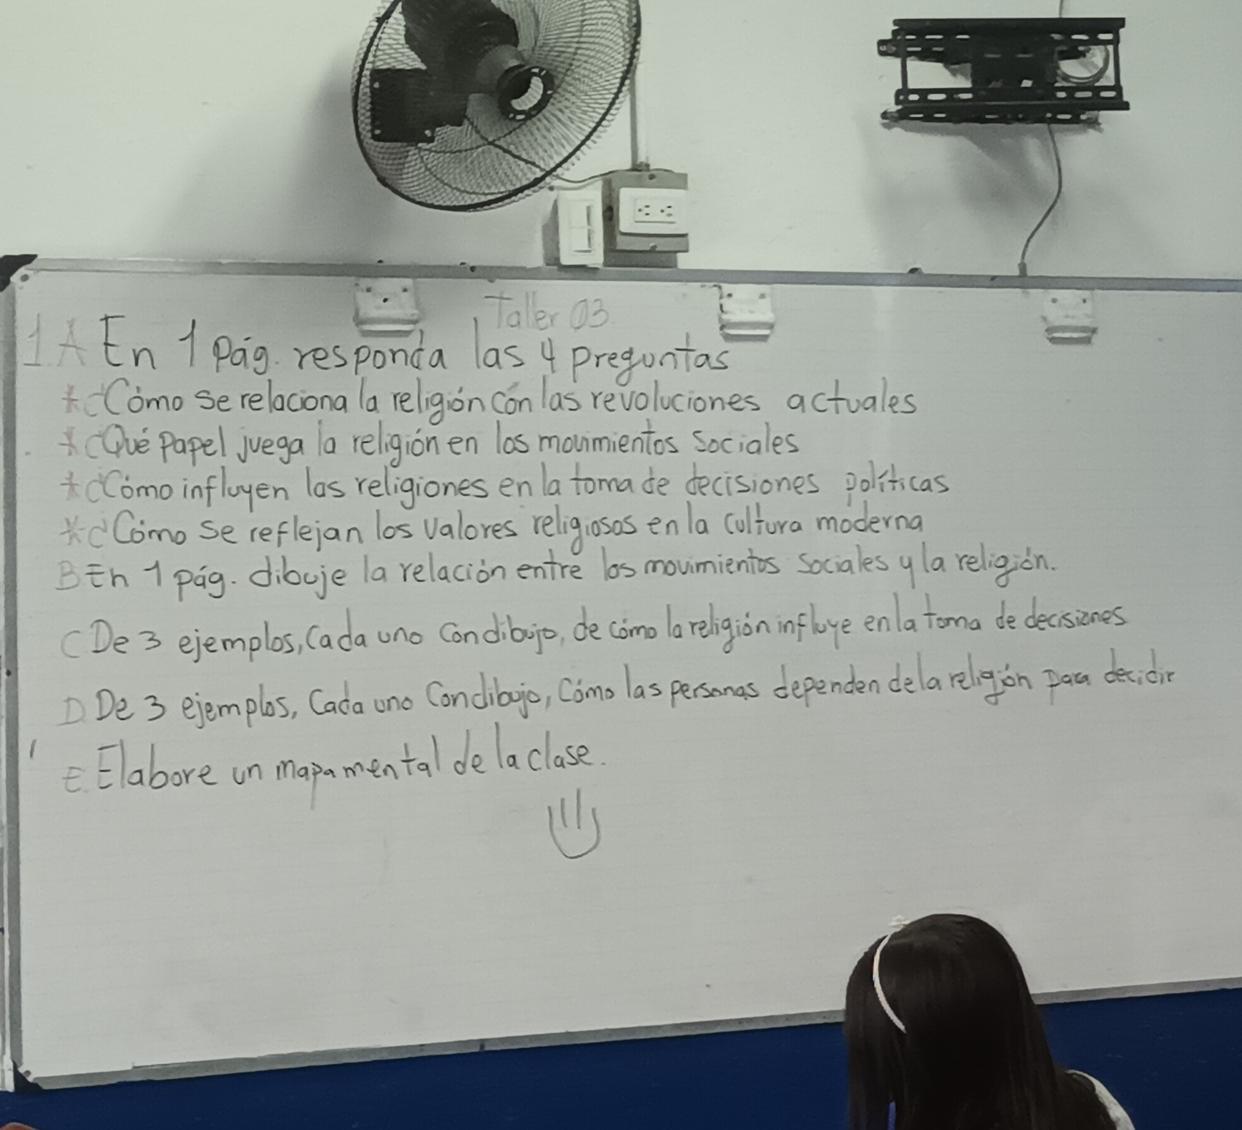 Taller 03
1. A En 1 pág. responda las 4 preguntas
* ¿Cómo se relaciona la religión con las revoluciones actuales
* ¿Qué papel juega la religión en los movimientos sociales
* ¿Cómo influyen las religiones en la toma de decisiones políticas
* ¿Cómo se reflejan los valores religiosos en la cultura moderna
B En 1 pág. dibuje la relación entre los movimientos sociales y la religión.
C De 3 ejemplos, Cada uno con dibujo, de cómo la religión influye en la toma de decisiones
D. De 3 ejemplos, Cada uno Con dibujo, Cómo las personas dependen de la religión para decidir
E. Elabore un mapa mental de la clase.